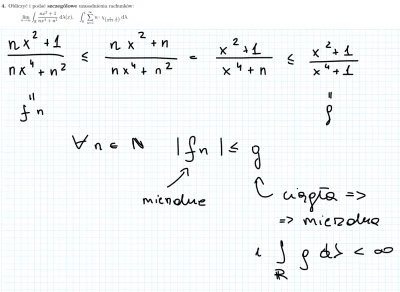 4. Obliczyć i podać szczegółowe uzasadnienia rachunków:
lim ∫ (nx²+1)/(nx⁴+n²) dλ(x),
(nx²+1)/(nx⁴+n²) ≤ (nx²+n)/(nx⁴+n²) = (x²+1)/(x⁴+n) ≤ (x²+1)/(x⁴+1)
fn g
∀ n ∈ ℕ |fn| ≤ g
mierzalne ciągła =>
=> mierzalna
i ∫ℝ g dλ < ∞